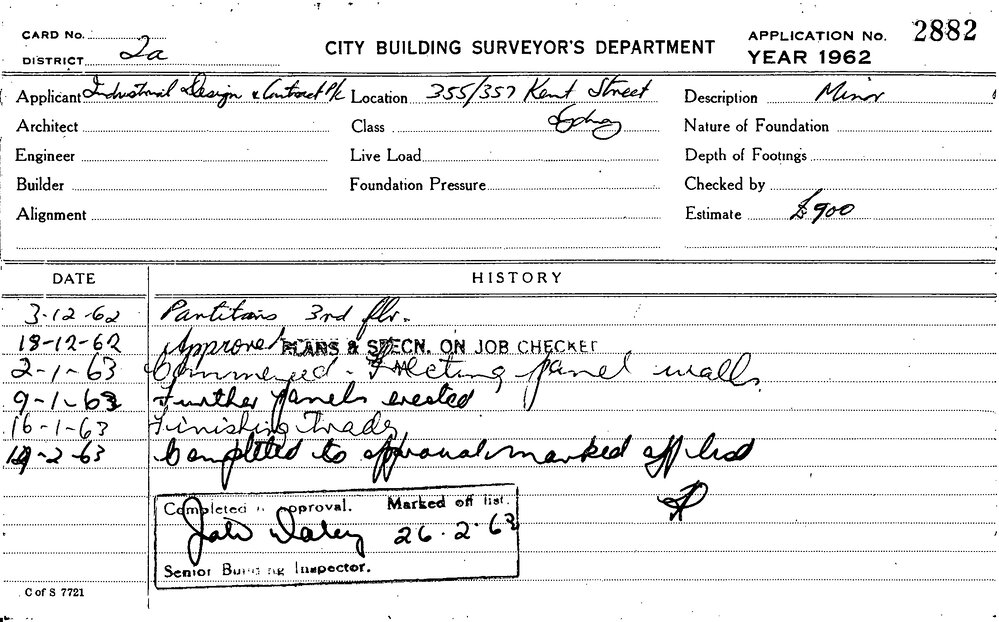 CARD No.
DISTRICT 2a
CITY BUILDING SURVEYOR'S DEPARTMENT
APPLICATION No. 2882
YEAR 1962
Applicant Industrial Design & Contract P/L Location 355/357 Kent Street Description Minor
Architect Class Sydney Nature of Foundation
Engineer Live Load Depth of Footings
Builder Foundation Pressure Checked by
Alignment Estimate £900
DATE HISTORY
3-12-62 Partitions 3rd flr.
18-12-62 Approved PLANS & SPECN. ON JOB CHECKED
2-1-63 Commenced - Erecting panel walls
9-1-63 Further panels erected
16-1-63 Finishing Trades
19-2-63 Completed to approval marked off list
Completed approval. Marked off list.
26-2-63
Senior Building Inspector.
C of S 7721